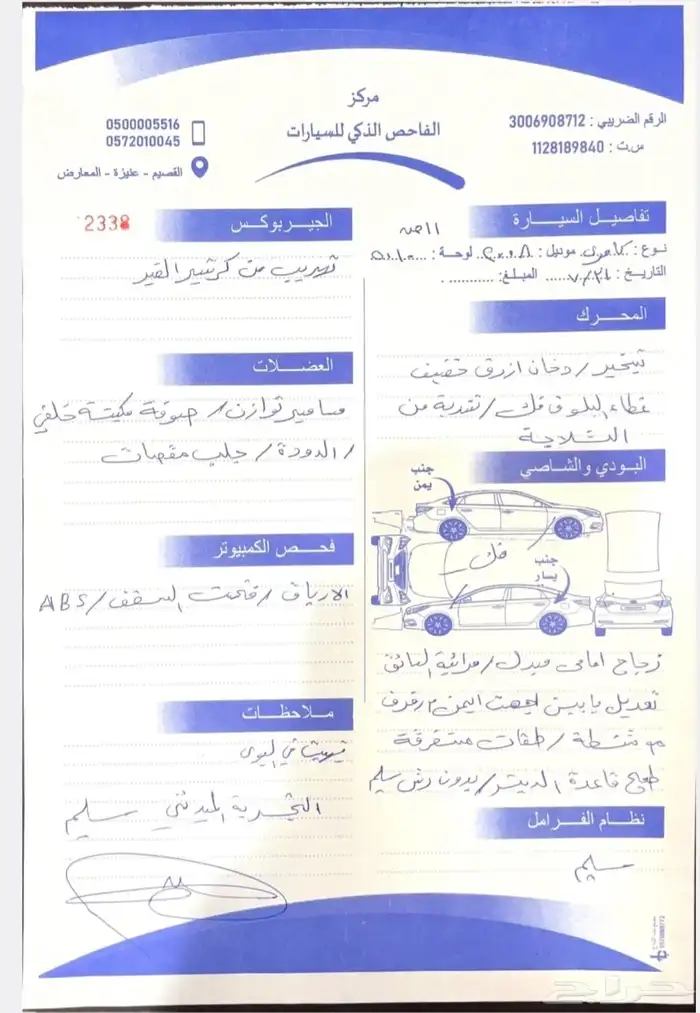 مركز
الفاحص الذكي للسيارات
الرقم الضريبي : 3006908712
س.ت : 1128189840
0500005516
0572010045
القصيم - عنيزة - المعارض
تفاصيل السيارة
نوع : كامري موديل : ٢٠٠٨ لوحة :
التاريخ : ٧/٢١ المبلغ :
المحرك
تبخير / دخان ازرق خفيف
غطاء البلوف فك / تندية من
الثلاجة
البودي والشاصي
جنب
يمن
فك
جنب
يسار
زجاج امامي مبدل / مراية السائق
تعديل بابين لجهت اليمن
ممشطة / طقات متفرقة
قاعدة الدينمو / بدون رش سليم
نظام الفرامل
سليم
الجير بوكس
2338
تهريب من كرتير القير
العضلات
مسامير توازن / صوفة مكينة خلفي
/ الدودة / جلب مقصات
فحص الكمبيوتر
الارياق / فتحت السقف / ABS
ملاحظات
تهريبات في البودي
التجربة الميدني سليم
حراج